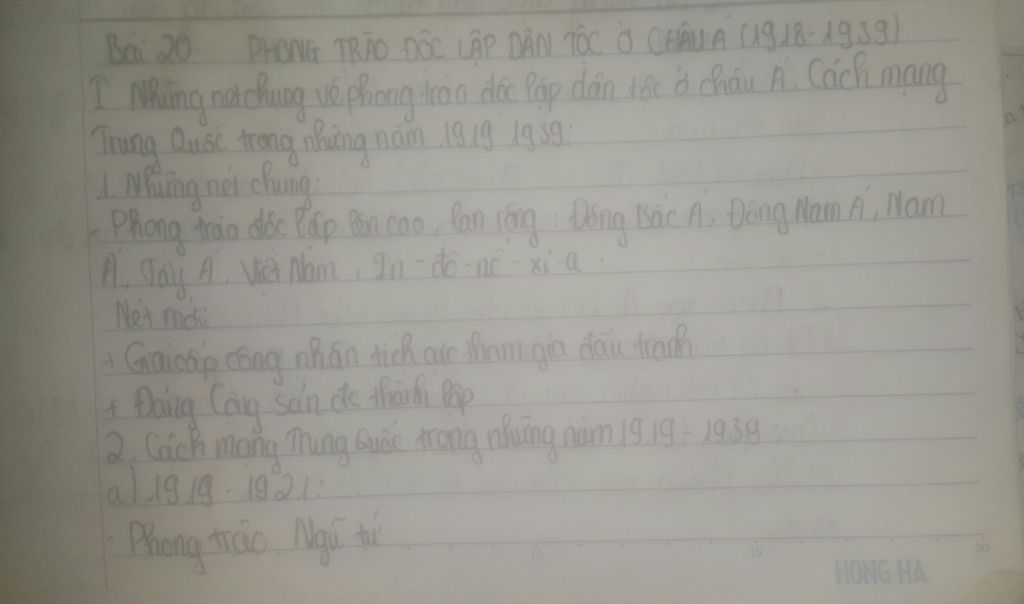 Bài 20. PHONG TRÀO ĐỘC LẬP DÂN TỘC Ở CHÂU Á (1918-1939)
I Những nét chung về phong trào độc lập dân tộc ở châu Á. Cách mạng
Trung Quốc trong những năm 1919-1939:
1. Những nét chung:
- Phong trào độc lập lên cao, lan rộng: Đông Bắc Á, Đông Nam Á, Nam
Á, Tây Á. Việt Nam, In-đô-nê-xi-a.
Nét mới:
+ Giai cấp công nhân tích cực tham gia đấu tranh
+ Đảng Cộng sản đc thành lập
2. Cách mạng Trung Quốc trong những năm 1919-1939
a) 1919-1921:
- Phong trào Ngũ tứ
10 15 20
HONG HA